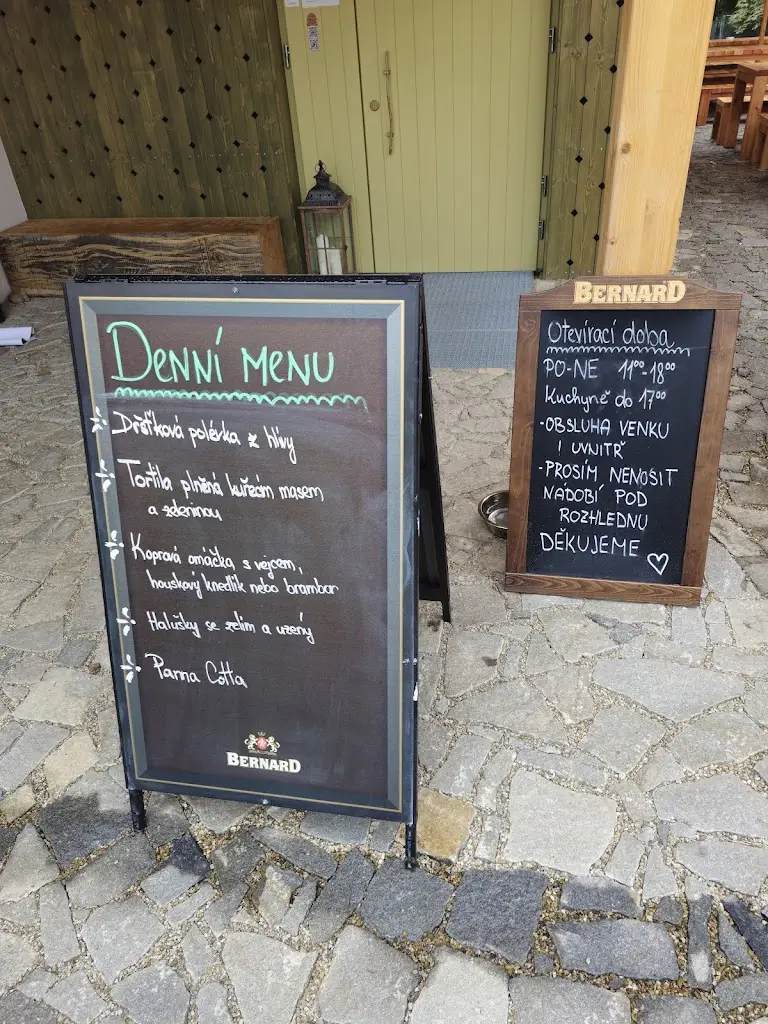 DENNÍ MENU
Dršťková polévka z hlívy
Tortila plněná kuřecím masem
a zeleninou
Koprová omáčka s vejcem,
houskový knedlík nebo brambor
Halušky se zelím a uzený
Panna Cotta
BERNARD
BERNARD
Otevírací doba
PO-NE 11⁰⁰-18⁰⁰
Kuchyně do 17⁰⁰
-OBSLUHA VENKU
I UVNITŘ
-PROSÍM NENOSIT
NÁDOBÍ POD
ROZHLEDNU
DĚKUJEME